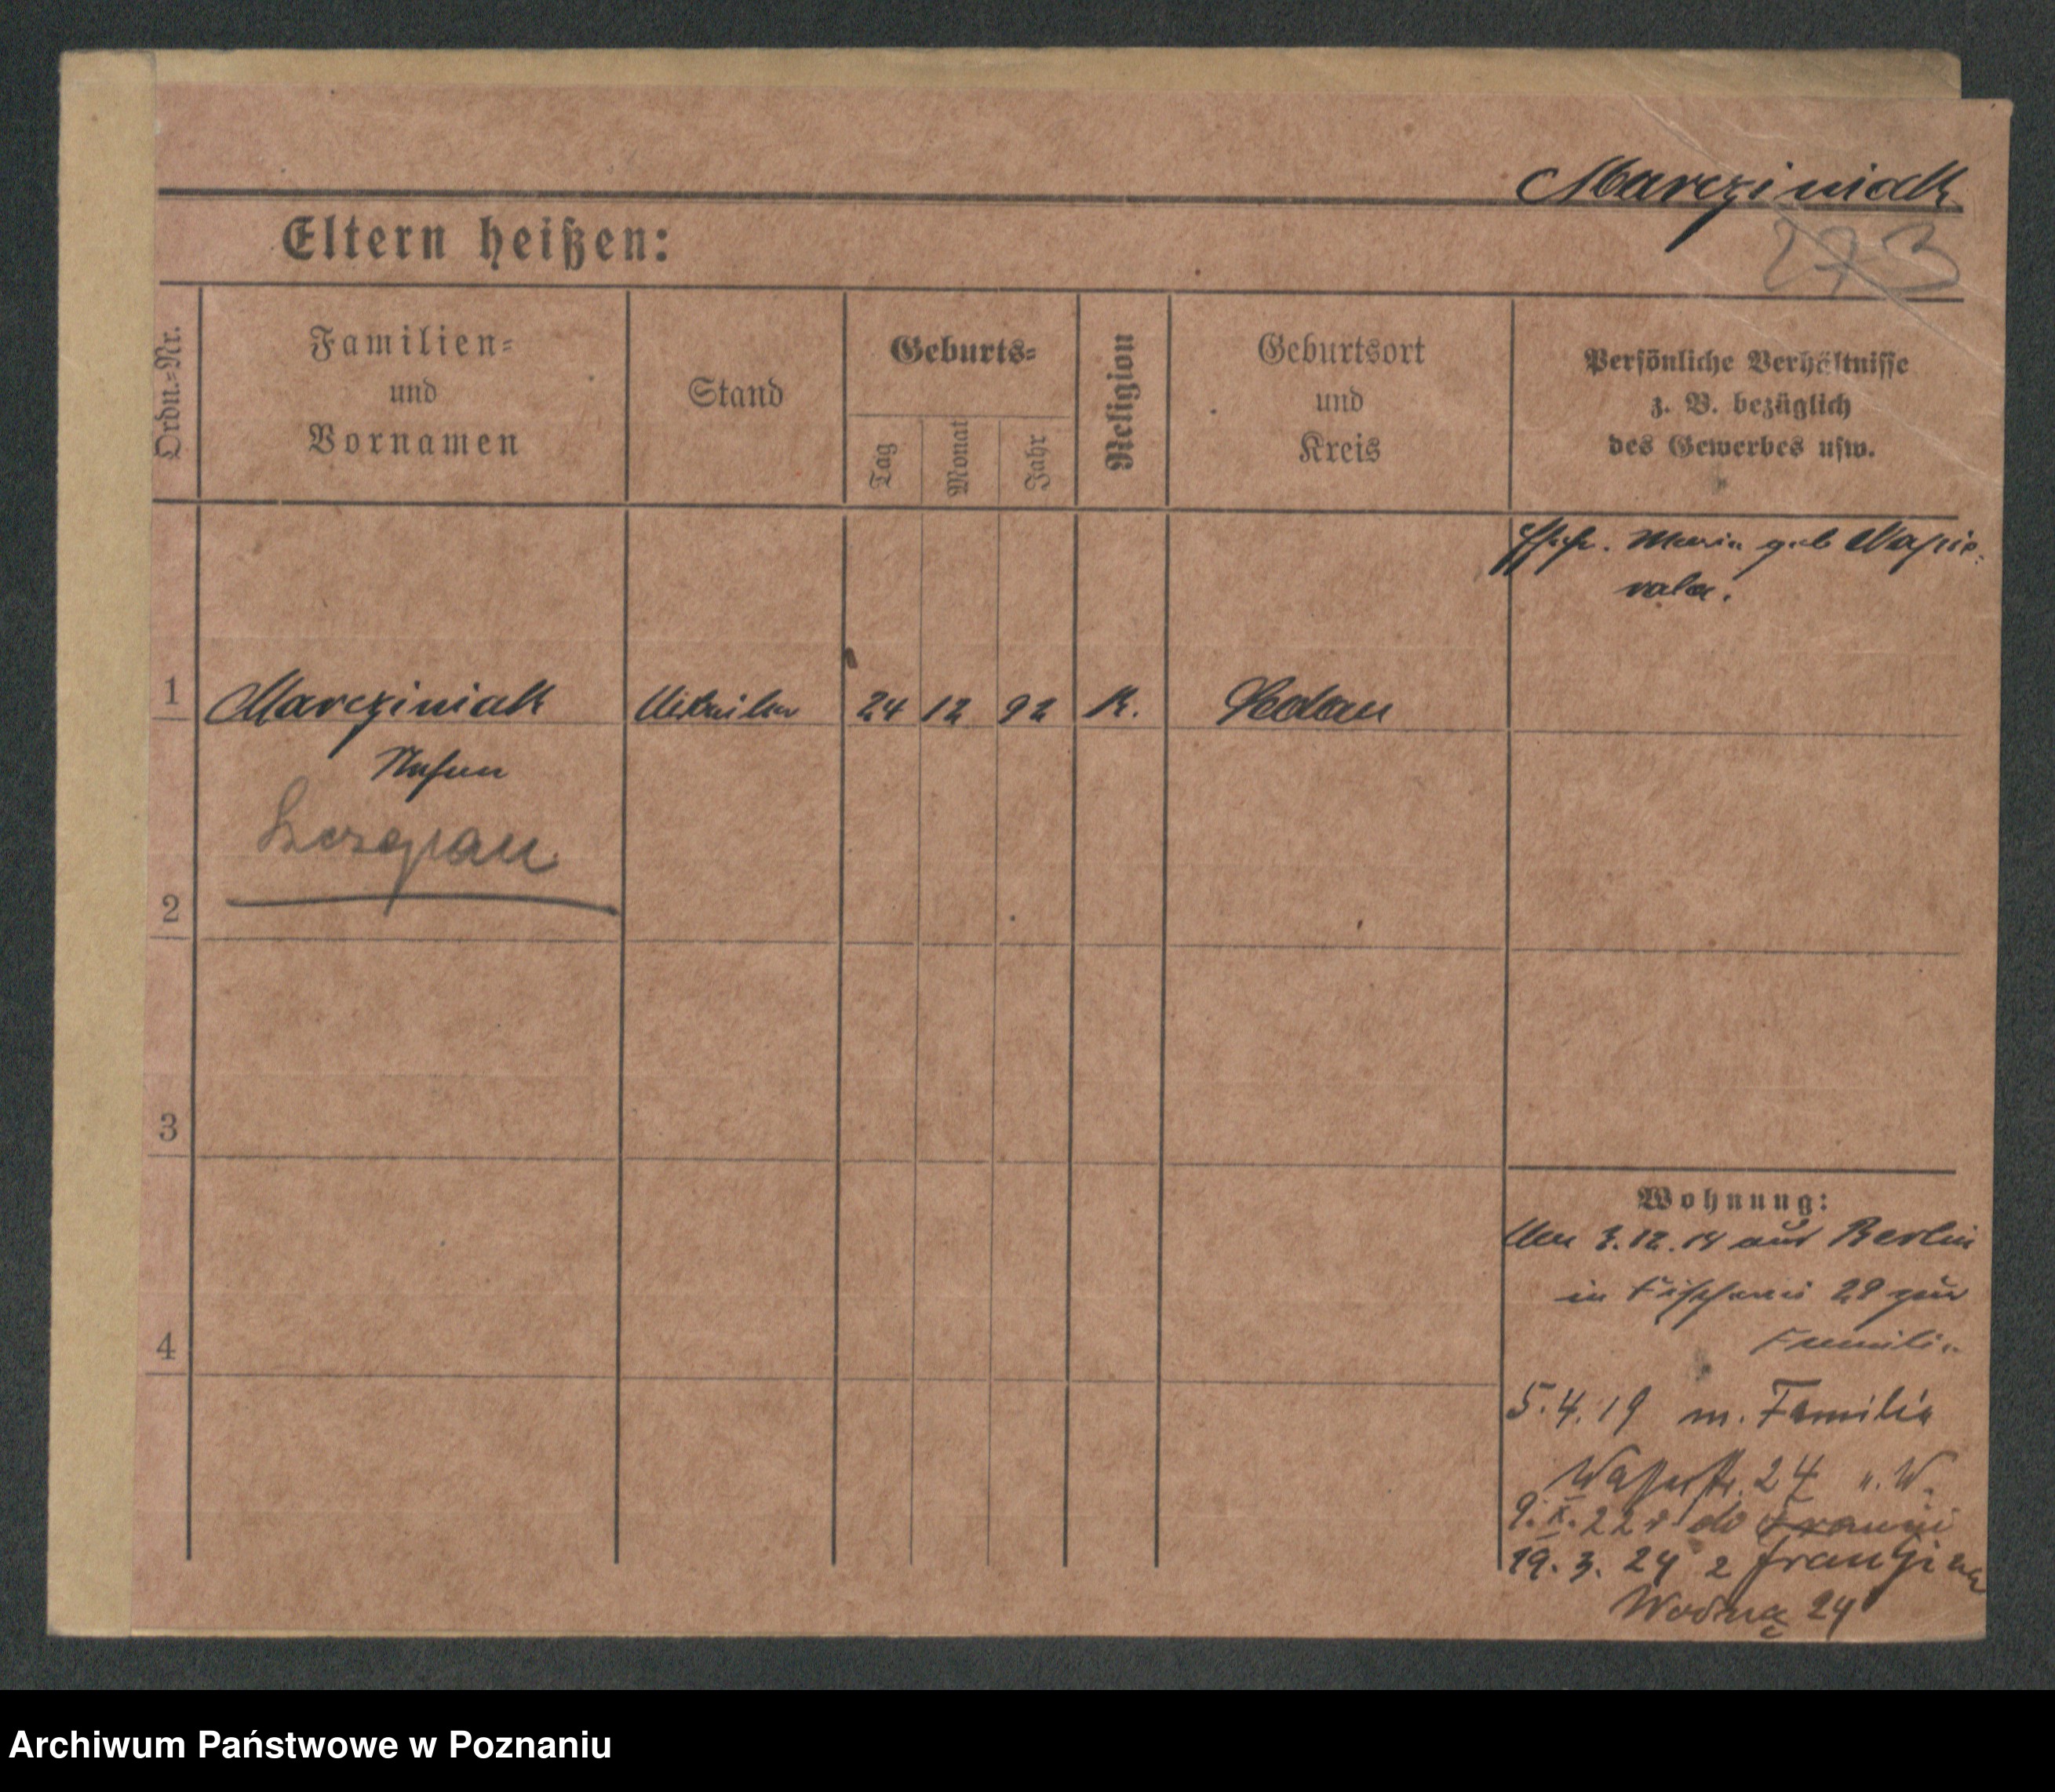 Marcziniak
273
Eltern heißen:
Ordn.-Nr.
Familien-
und
Vornamen
Stand
Geburts-
Tag
Monat
Jahr
Religion
Geburtsort
und
Kreis
Persönliche Verhältnisse
z. B. bezüglich
des Gewerbes usw.
Ehefr. Maria geb
1 Marcziniak 24 12 92 K.
Stefan
Szczepan
2
3
4
Wohnung:
3.12.14 aus Berlin
in Fischerei 29 zur
Familie
5.4.19 m. Familie
Wasserstr. 24 W.
9.X.22 r do Francji
19.3.24 z Francji na
Wodną 24
Archiwum Państwowe w Poznaniu